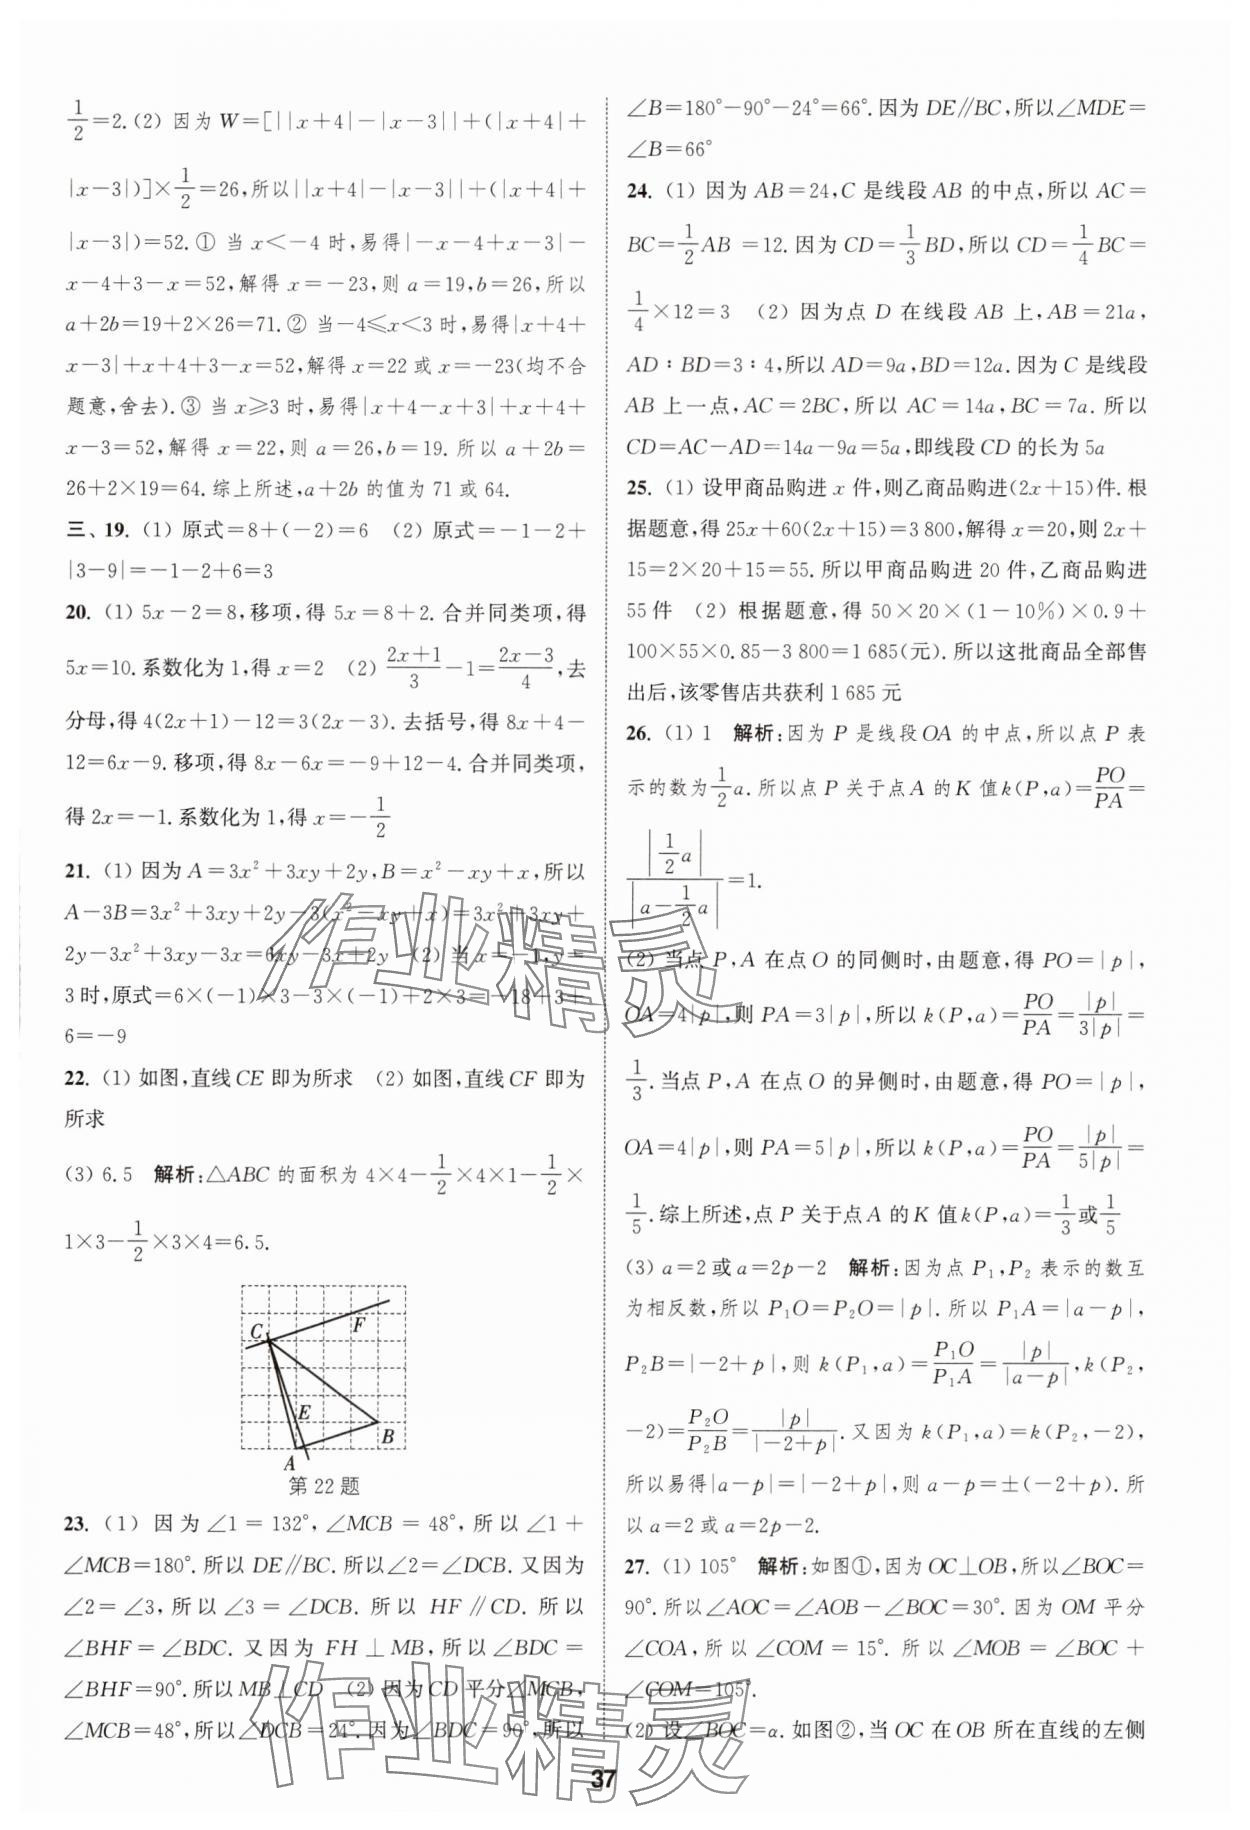 1/2=2.(2) 因为 W=[||x+4|-|x-3||+(|x+4|+
|x-3|)]×1/2=26,所以||x+4|-|x-3||+(|x+4|+
|x-3|)=52.① 当 x<-4 时,易得|-x-4+x-3|-
x-4+3-x=52,解得 x=-23,则 a=19,b=26,所以
a+2b=19+2×26=71.② 当-4≤x<3 时,易得|x+4+
x-3|+x+4+3-x=52,解得 x=22 或 x=-23(均不合
题意,舍去).③ 当 x≥3 时,易得|x+4-x+3|+x+4+
x-3=52,解得 x=22,则 a=26,b=19.所以 a+2b=
26+2×19=64.综上所述,a+2b 的值为 71 或 64.
三、19.(1) 原式=8+(-2)=6 (2) 原式=-1-2+
|3-9|=-1-2+6=3
20.(1) 5x-2=8,移项,得 5x=8+2.合并同类项,得
5x=10.系数化为 1,得 x=2 (2) (2x+1)/3-1=(2x-3)/4,去
分母,得 4(2x+1)-12=3(2x-3).去括号,得 8x+4-
12=6x-9.移项,得 8x-6x=-9+12-4.合并同类项,
得 2x=-1.系数化为 1,得 x=-1/2
21.(1) 因为 A=3x²+3xy+2y,B=x²-xy+x,所以
A-3B=3x²+3xy+2y-3(x²-xy+x)=3x²+3xy+
2y-3x²+3xy-3x=6xy-3x+2y (2) 当 x=-1,y=
3 时,原式=6×(-1)×3-3×(-1)+2×3=-18+3+
6=-9
22.(1) 如图,直线 CE 即为所求 (2) 如图,直线 CF 即为
所求
(3) 6.5 解析:△ABC 的面积为 4×4-1/2×4×1-1/2×
1×3-1/2×3×4=6.5.
C
F
E
B
A
第 22 题
23.(1) 因为 ∠1 = 132°, ∠MCB = 48°, 所以 ∠1 +
∠MCB=180°.所以 DE∥BC.所以∠2=∠DCB.又因为
∠2=∠3,所以∠3=∠DCB.所以 HF∥CD.所以
∠BHF=∠BDC.又因为 FH⊥MB,所以∠BDC=
∠BHF=90°.所以 MB⊥CD (2) 因为 CD 平分∠MCB,
∠MCB=48°,所以∠DCB=24°.因为∠BDC=90°,所以
∠B=180°-90°-24°=66°.因为 DE∥BC,所以∠MDE=
∠B=66°
24.(1) 因为 AB=24,C 是线段 AB 的中点,所以 AC=
BC=1/2AB =12.因为 CD=1/3BD,所以 CD=1/4BC=
1/4×12=3 (2) 因为点 D 在线段 AB 上,AB=21a,
AD∶BD=3∶4,所以 AD=9a,BD=12a.因为 C 是线段
AB 上一点,AC=2BC,所以 AC=14a,BC=7a.所以
CD=AC-AD=14a-9a=5a,即线段 CD 的长为 5a
25.(1) 设甲商品购进 x 件,则乙商品购进(2x+15)件.根
据题意,得 25x+60(2x+15)=3 800,解得 x=20,则 2x+
15=2×20+15=55.所以甲商品购进 20 件,乙商品购进
55 件 (2) 根据题意,得 50×20×(1-10%)×0.9+
100×55×0.85-3 800=1 685(元).所以这批商品全部售
出后,该零售店共获利 1 685 元
26.(1) 1 解析:因为 P 是线段 OA 的中点,所以点 P 表
示的数为1/2a.所以点 P 关于点 A 的 K 值 k(P,a)=PO/PA=
|1/2a|/|a-1/2a|=1.
(2) 当点 P,A 在点 O 的同侧时,由题意,得 PO=|p|,
OA=4|p|,则 PA=3|p|,所以 k(P,a)=PO/PA=|p|/3|p|=
1/3.当点 P,A 在点 O 的异侧时,由题意,得 PO=|p|,
OA=4|p|,则 PA=5|p|,所以 k(P,a)=PO/PA=|p|/5|p|=
1/5.综上所述,点 P 关于点 A 的 K 值 k(P,a)=1/3或1/5
(3) a=2 或 a=2p-2 解析:因为点 P₁,P₂ 表示的数互
为相反数,所以 P₁O=P₂O=|p|.所以 P₁A=|a-p|,
P₂B=|-2+p|,则 k(P₁,a)=P₁O/P₁A=|p|/|a-p|,k(P₂,
-2)=P₂O/P₂B=|p|/|-2+p|.又因为 k(P₁,a)=k(P₂,-2),
所以易得|a-p|=|-2+p|,则 a-p=±(-2+p).所
以 a=2 或 a=2p-2.
27.(1) 105° 解析:如图①,因为 OC⊥OB,所以∠BOC=
90°.所以∠AOC=∠AOB-∠BOC=30°.因为 OM 平分
∠COA,所以∠COM=15°.所以∠MOB=∠BOC+
∠COM=105°.
(2) 设∠BOC=α.如图②,当 OC 在 OB 所在直线的左侧
37
作业精灵
作业精灵